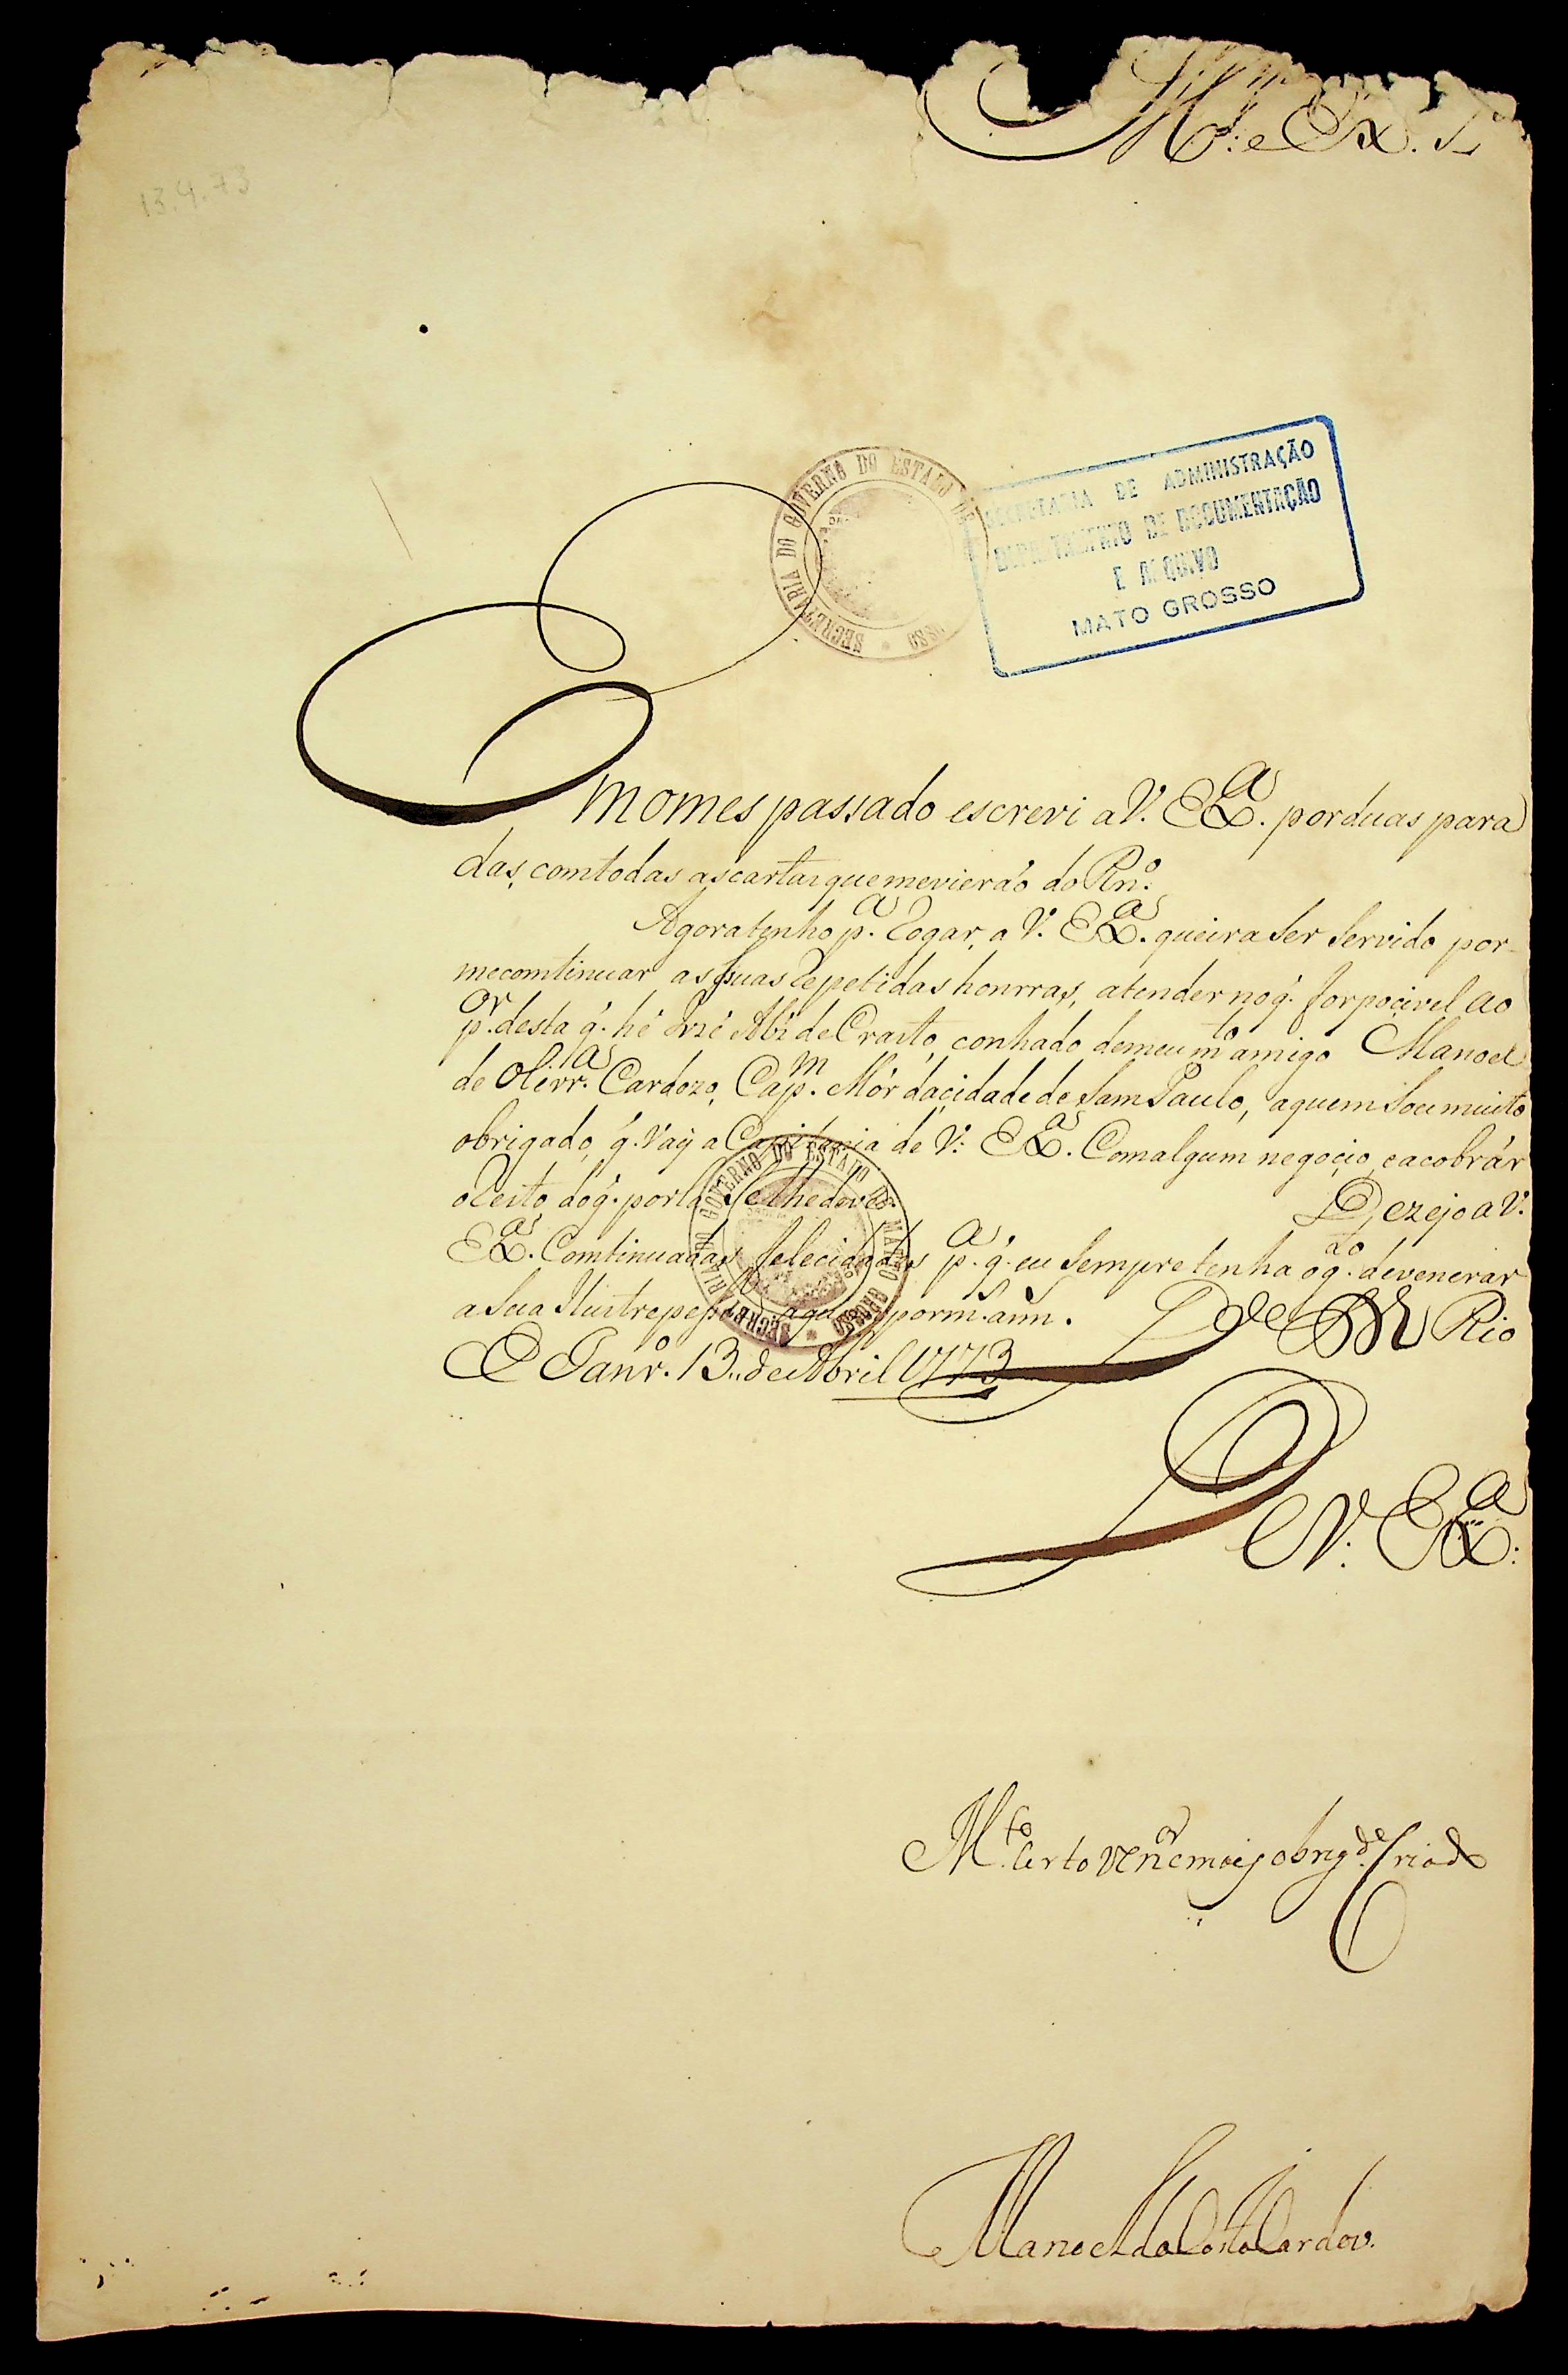 Ill.mo e Ex. S.
13.4.73
SECRETARIA DO GOVERNO DO ESTADO DE
OSSO
SECRETARIA DE ADMINISTRAÇÃO
DEPARTAMENTO DE DOCUMENTAÇÃO
E ARQUIVO
MATO GROSSO
Emomes passado escrevi aV. Exª. porduas para
das, comtodas ascartas quemevierão do Rnº.
Agoratenho pª. Rogar, a V. Exª. queira Ser Servido por-
mecomtinuar asSuas Repetidas honrras, atender noq. forpocivel ao
p.or desta q. hé Jozé de Crasto, conhado demeu m.to amigo Manoel
de Olivr.ª Cardozo, Cap.m Mór dacidade de Sam Paulo, aquem Sou muito
obrigado, q. Vay a Capitania de V. Exª. Comalgum negocio, eacobrár
oResto doq. porlá Selhedeve. Dezejo a V.
Exª. Comtinuadas felecidades pª. q. eu Sempre tenha og.to devenerar
a Sua Ilustre pesoa, aq porm.s ann.s De M Rio
D Janr.º 13,, de Abril 1773
SECRETARIA DO GOVERNO DO ESTADO DE MATTO GROSSO
D V. Exª.
M.to Certo Ven.or emais obrig.do Criado
Manoel da Costa Cardozo.